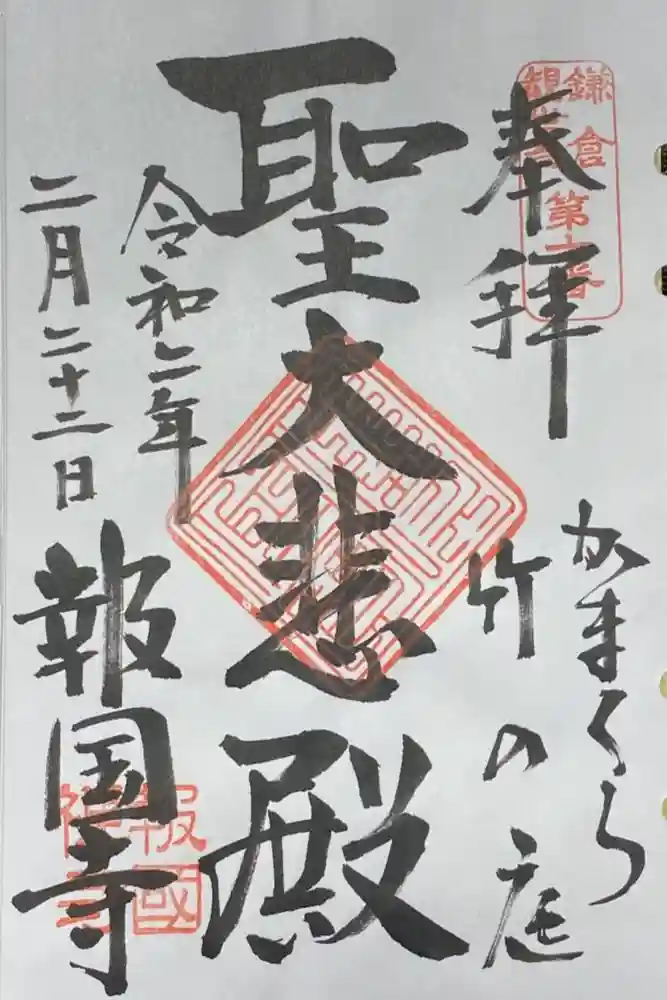 奉拝
鎌倉
第十番
かまくら
竹の庭
聖大悲殿
令和二年
二月二十二日
報国寺
報國
禅寺